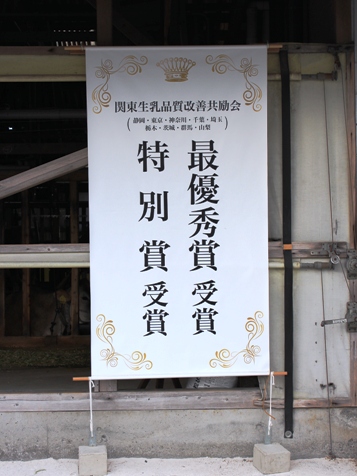 関東生乳品質改善共励会
(静岡・東京・神奈川・千葉・埼玉
栃木・茨城・群馬・山梨)
最優秀賞 受賞
特別賞 受賞